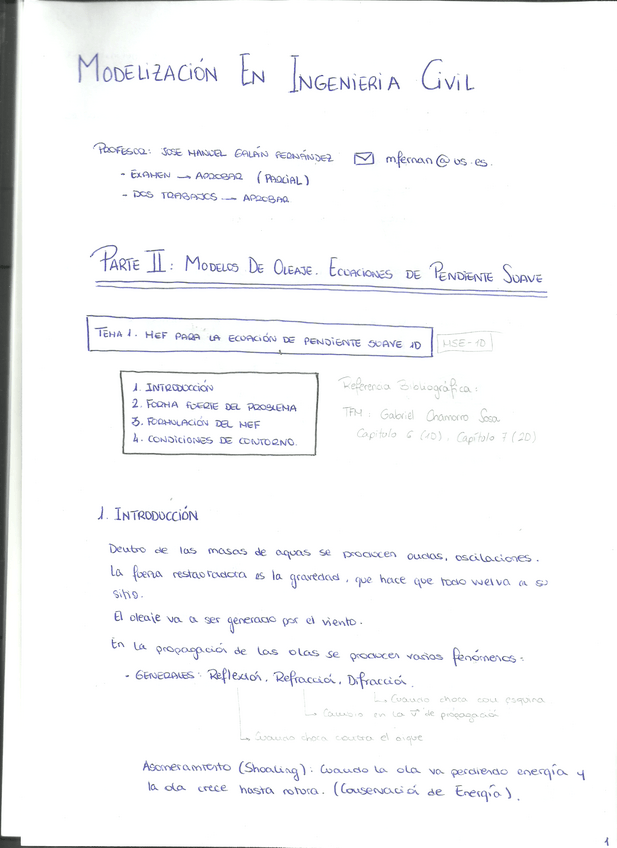 MODELIZACIÓN EN INGENIERIA CIVIL
PROFESOR: JOSE MANUEL GALÁN FERNÁNDEZ mfernan@us.es.
- EXAMEN → APROBAR (PARCIAL)
- DOS TRABAJOS → APROBAR
PARTE II: MODELOS DE OLEAJE. ECUACIONES DE PENDIENTE SUAVE
TEMA 1. MEF PARA LA ECUACIÓN DE PENDIENTE SUAVE 1D MSE-1D
1. INTRODUCCIÓN
2. FORMA FUERTE DEL PROBLEMA
3. FORMULACIÓN DEL MEF
4. CONDICIONES DE CONTORNO.
Referencia Bibliográfica:
TFM: Gabriel Chamorro Sosa
Capítulo 6 (1D). Capítulo 7 (2D)
1. INTRODUCCIÓN
Dentro de las masas de aguas se producen ondas, oscilaciones.
La fuerza restauradora es la gravedad, que hace que todo vuelva a su
sitio.
El oleaje va a ser generado por el viento.
En la propagación de las olas se producen varios fenómenos:
- GENERALES: Reflexión, Refracción, Difracción.
↳ Cuando choca con esquina
↳ Cambio en la v de propagación
↳ Cuando choca contra el dique
Asomeramiento (Shoaling): Cuando la ola va perdiendo energía y
la ola crece hasta rotura. (Conservació de Energía).
1